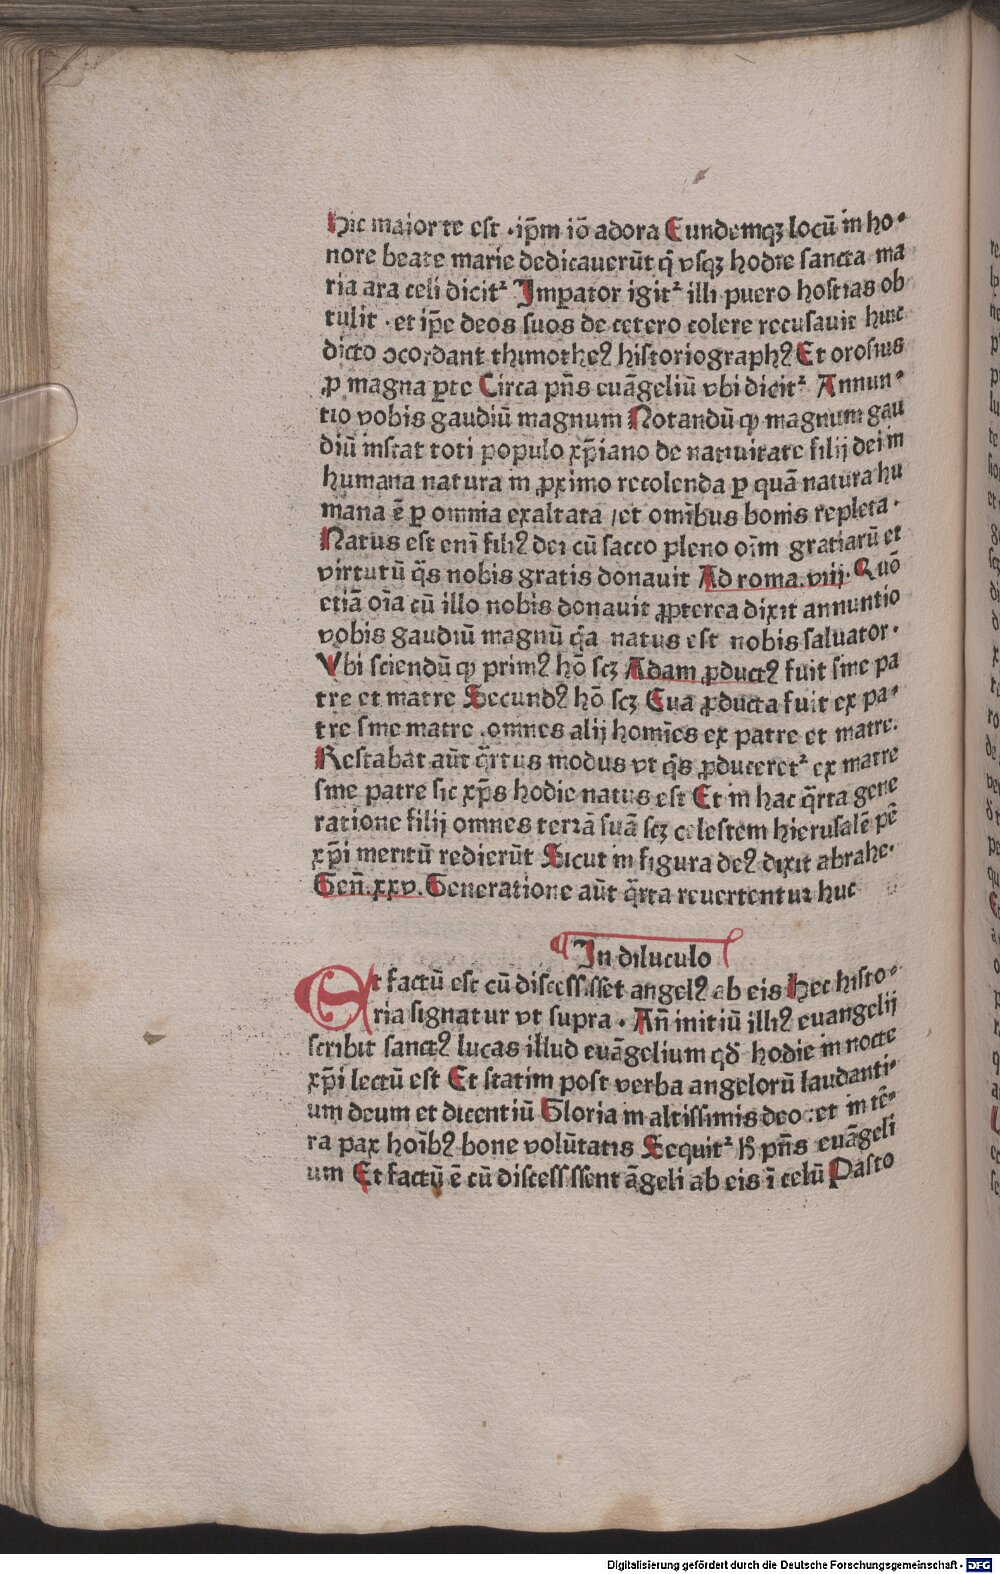 Hic maior te est . ip̄m iō adora Eundemqꝫ locū in ho⸗
nore beate marie dedicauerūt q̄ vsqꝫ hodie sancta ma
ria ara celi dicitᷣ Imꝑator igitᷣ illi puero hostias ob
tulit . et ip̄e deos suos de cetero colere recusauit huic
dicto ↄcordant thimotheꝰ historiographꝰ Et orosius
ꝓ magna ꝑte Circa pn̄s euāgeliū vbi dicitᷣ Annun⸗
tio vobis gaudiū magnum Notandū ꝙ magnum gau
diū instat toti populo xp̄iano de natiuitate filij dei in
humana natura in ꝓximo recolenda ꝑ quā natura hu
mana ē ꝑ omnia exaltata / et omībus bonis repleta .
Natus est enī filiꝰ dei cū sacco pleno oīm gratiarū et
virtutū q̄s nobis gratis donauit Ad roma. viij. Quō
etiā oīa cū illo nobis donauit ꝓpterea dixit annuntio
vobis gaudiū magnū q̄a natus est nobis saluator .
Vbi sciendū ꝙ primꝰ hō scꝫ Adam ꝓductꝰ fuit sine pa
tre et matre Secundꝰ hō scꝫ Eua ꝓducta fuit ex pa⸗
tre sine matre . omnes alij homīes ex patre et matre.
Restabat aūt q̄rtus modus vt q̄s ꝓduceretᷣ ex matre
sine patre sic xp̄s hodie natus est Et in hac q̄rta gene
ratione filij omnes terrā suā scꝫ celestem hierusalē pē
xp̄i meritū redierūt Sicut in figura deꝰ dixit abrahe.
Geñ. xxv. Generatione aūt q̄rta reuertentur huc
In diluculo
Et factū est cū discessisset angelꝰ ab eis Hec histo⸗
ria signatur vt supra . Añ initiū illiꝰ euangelij
scribit sanctꝰ lucas illud euāgelium qđ hodie in nocte
xp̄i lectū est Et statim post verba angelorū laudanti⸗
um deum et dicentiū Gloria in altissimis deo : et in tē⸗
ra pax hoībꝰ bone volūtatis Sequitᷣ h̄ pn̄s euāgeli
um Et factū ē cū discessissent āgeli ab eis ī celū Pasto
Digitalisierung gefördert durch die Deutsche Forschungsgemeinschaft - DFG